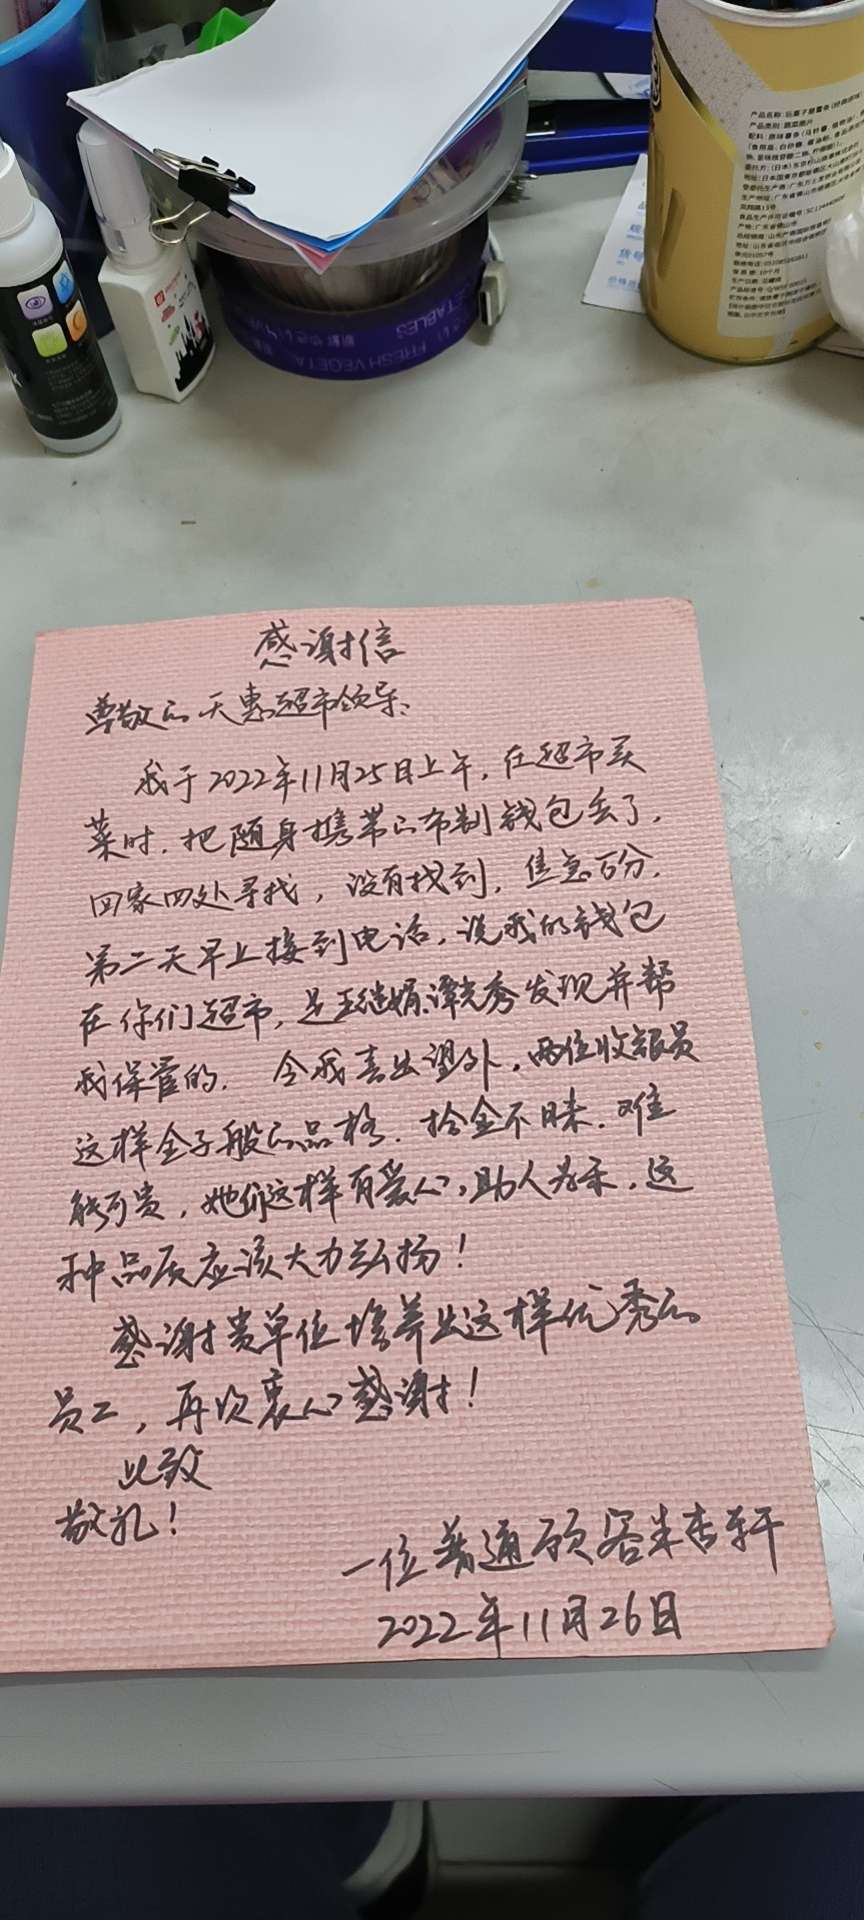 产品类别:蔬菜脆片
FRESH VEGETA
ETABLES
感谢信
尊敬的天惠超市领导:
我于2022年11月25日上午,在超市买
菜时,把随身携带的布制钱包丢了,
回家四处寻找,没有找到,焦急万分.
第二天早上接到电话,说我的钱包
在你们超市,是王继娟、谭光秀发现并帮
我保管的. 令我喜出望外,两位收银员
这样金子般的品格.拾金不昧.难
能可贵,她们这样有爱心,助人为乐,这
种品质应该大力弘扬!
感谢贵单位培养出这样优秀的
员工,再次衷心感谢!
此致
敬礼!
一位普通顾客朱杏轩
2022年11月26日